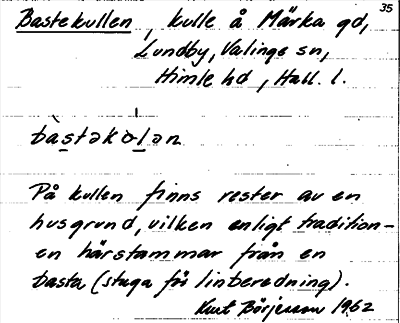 35
Bastekullen, kulle å Märka gd,
Lundby, Valinge sn,
Himle hd, Hall. l.
bàstəkơlən
På kullen finns rester av en
husgrund, vilken enligt tradition-
en härstammar från en
basta (stuga för linberedning).
Kurt Börjesson 1962